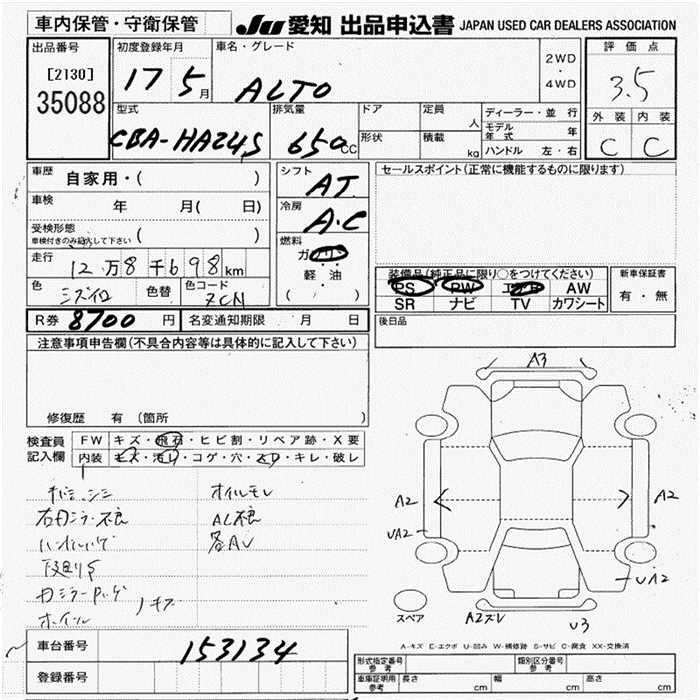 車内保管・守衛保管
JU 愛知 出品申込書 JAPAN USED CAR DEALERS ASSOCIATION
出品番号
[2130]
35088
初度登録年月
17 5月
車名・グレード
ALTO
2WD
・
4WD
評価点
3.5
外装 内装
C C
型式
CBA-HA24S
排気量
650CC
ドア
形状
定員
人
積載
kg
ディーラー・並行
モデル年式 年
ハンドル 左・右
車歴
自家用・( )
車検 年 月( 日)
受検形態
車検付きのみ記入して下さい ( )
走行
12万8千698km
色 色替 色コード
ミズイロ ZCM
シフト
AT
冷房
A.C
燃料
ガソリン
・
軽・油
( )
セールスポイント(正常に機能するものに限ります)
装備品(純正品に限り○をつけてください)
PS PW エアB AW
SR ナビ TV カワシート
新車保証書
有・無
後日品
R券 8700円
名変通知期限 月 日
注意事項申告欄(不具合内容等は具体的に記入して下さい)
修復歴 有 (箇所 )
検査員記入欄
FW キズ・飛石・ヒビ割・リペア跡・X要
内装 キズ・汚レ・コゲ・穴・スレ・キレ・破レ
オイルモレ
右ドミラー不良 AC不良
下廻りS
ホイール
キズ
A3
A2
A2
UA2
UA2
スペア
A2ズレ
U3
A-キズ E-エクボ U-凹み W-補修跡 S-サビ C-腐食 XX-交換済
車台番号
153134
登録番号
形式指定番号 参考
類別区分番号 参考
車庫証明用 参考
長さ cm
幅 cm
高さ cm